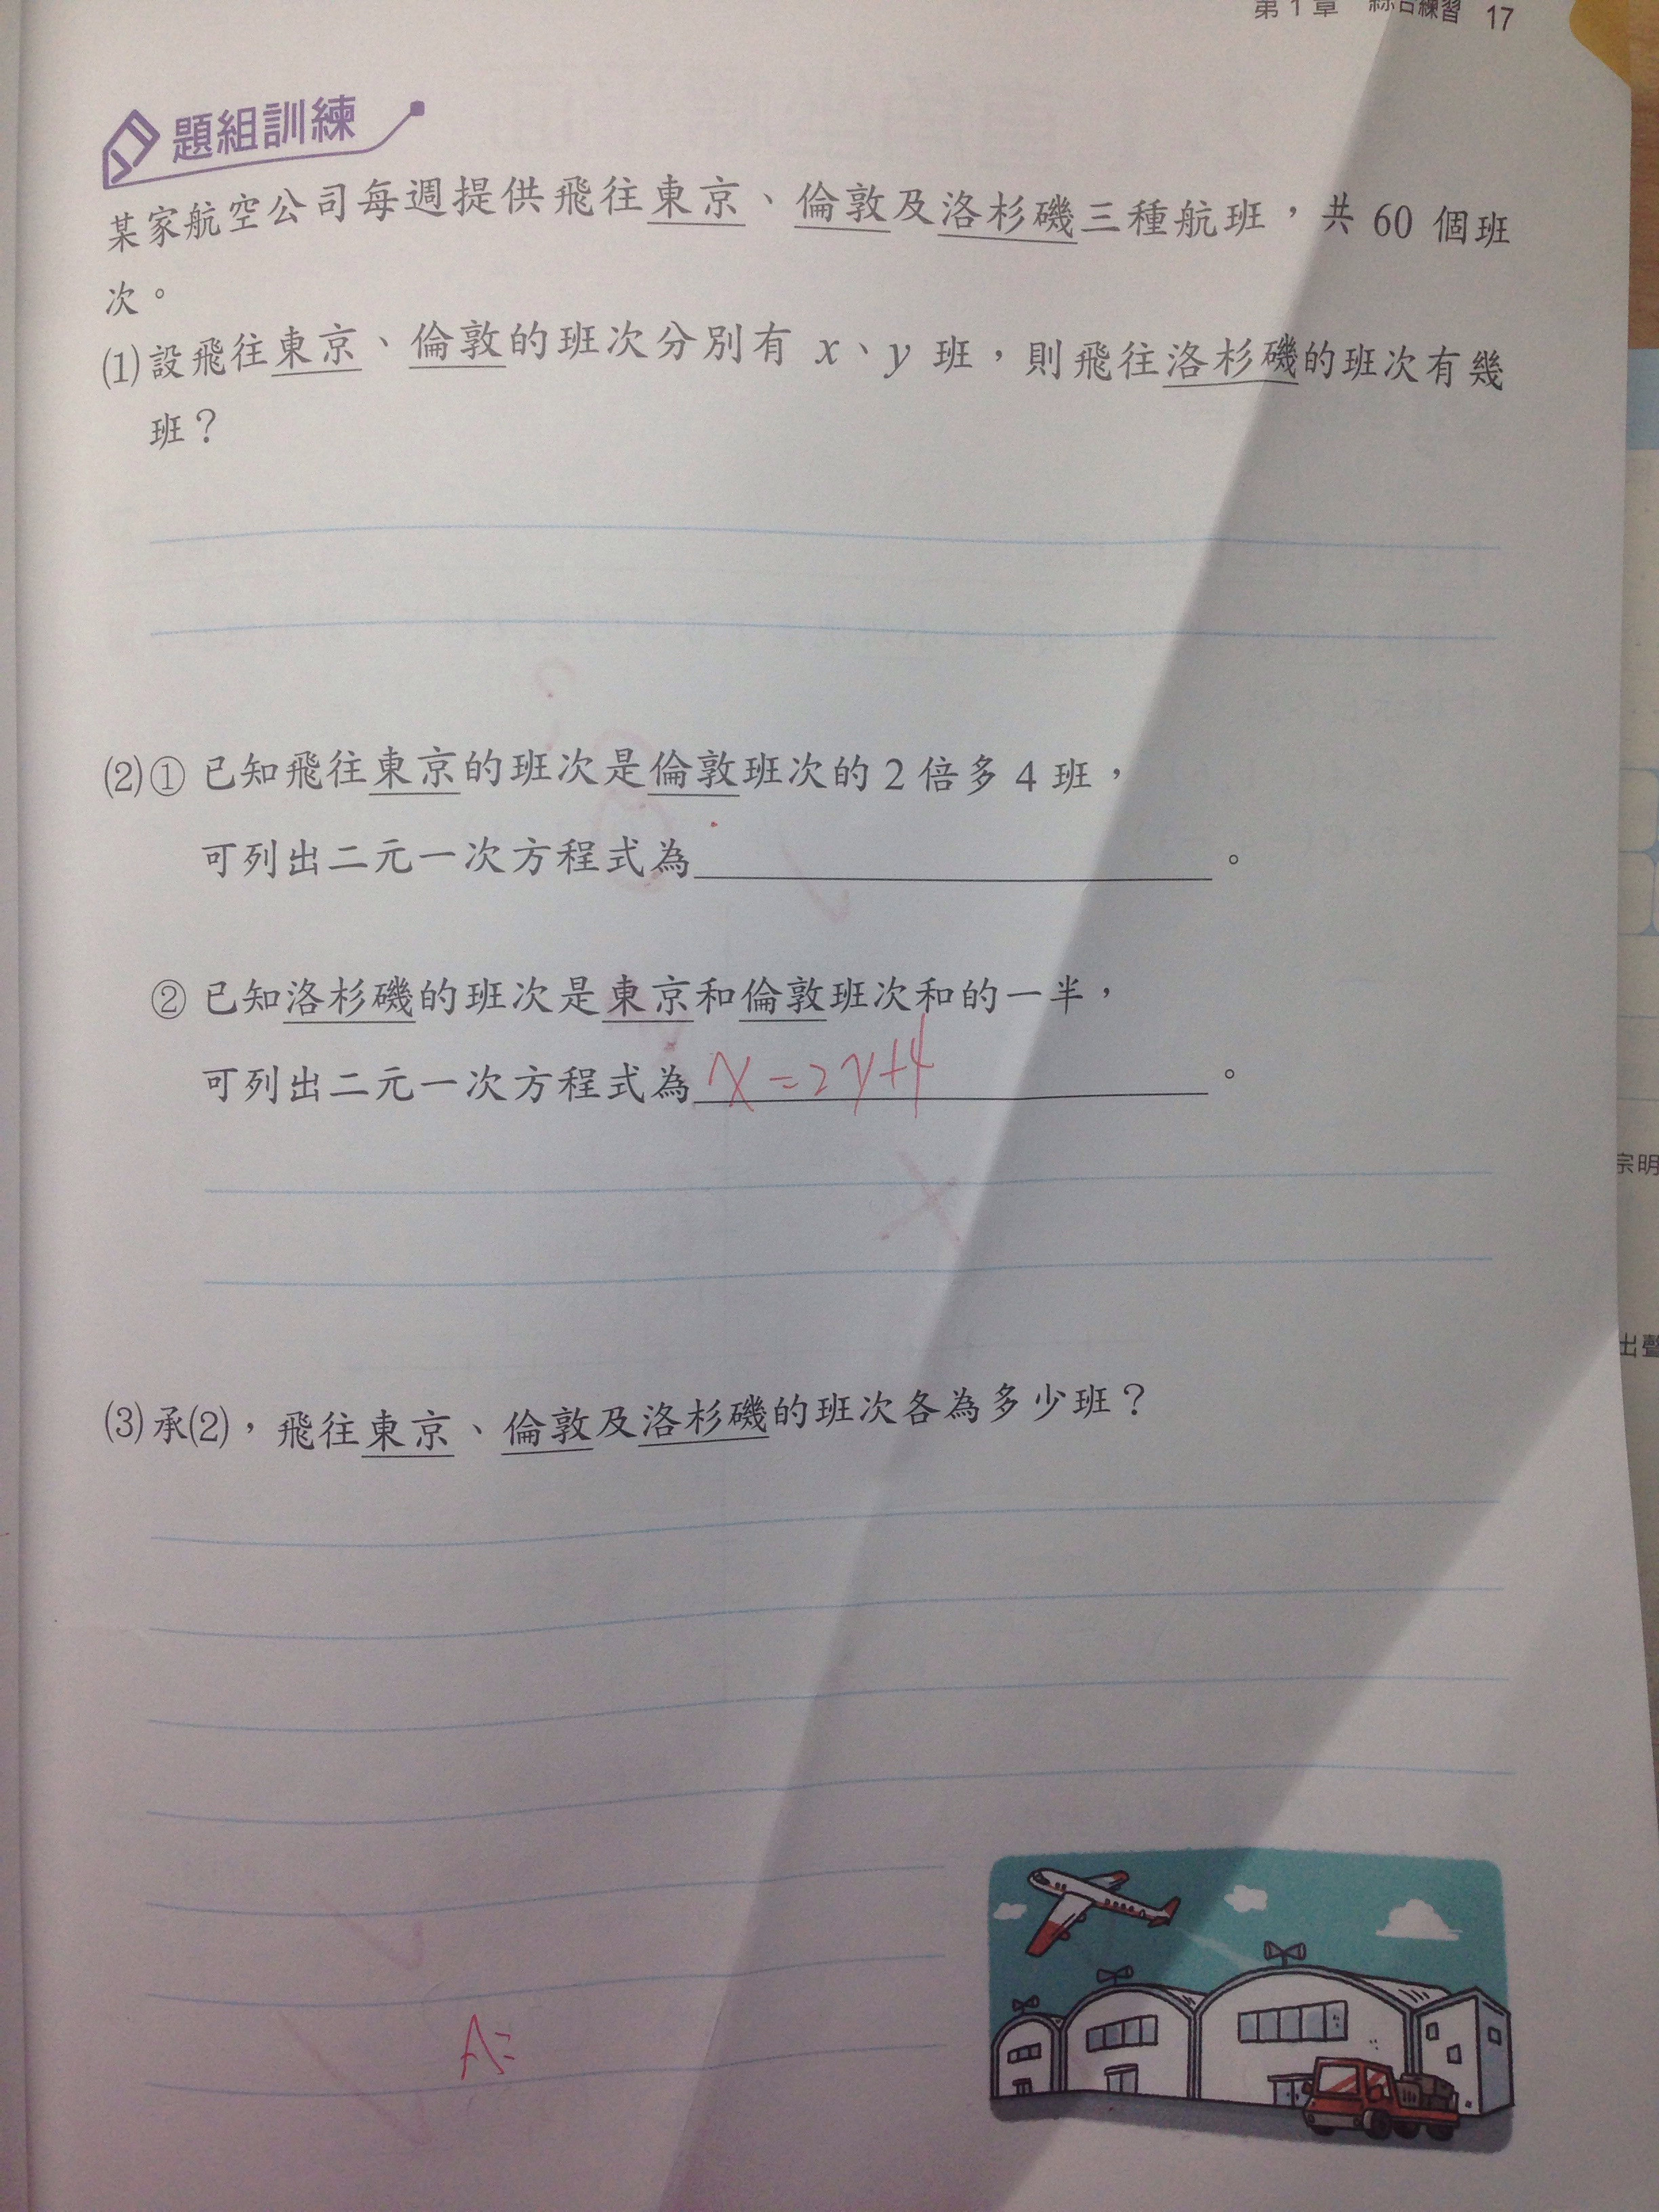 第1章 綜合練習 17
題組訓練
某家航空公司每週提供飛往東京、倫敦及洛杉磯三種航班，共 60 個班
次。
⑴設飛往東京、倫敦的班次分別有 x、y 班，則飛往洛杉磯的班次有幾
班？
⑵① 已知飛往東京的班次是倫敦班次的 2 倍多 4 班，
可列出二元一次方程式為 。
② 已知洛杉磯的班次是東京和倫敦班次和的一半，
可列出二元一次方程式為 x=2y+4 。
⑶承⑵，飛往東京、倫敦及洛杉磯的班次各為多少班？
A=
宗明
出聲